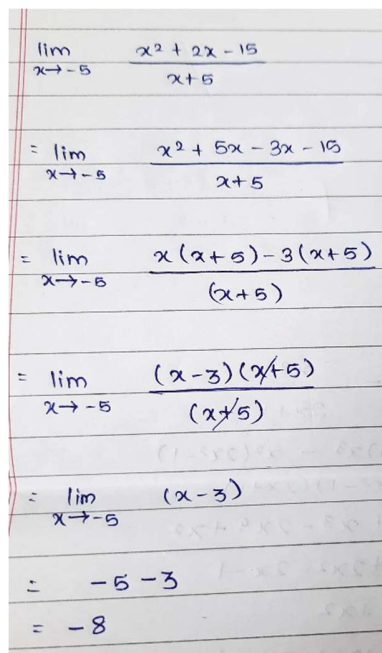 lim x→-5 (x² + 2x - 15)/(x+5)
= lim x→-5 (x² + 5x - 3x - 15)/(x+5)
= lim x→-5 (x(x+5) - 3(x+5))/((x+5))
= lim x→-5 ((x-3)(x+5))/((x+5))
= lim x→-5 (x-3)
= -5-3
= -8